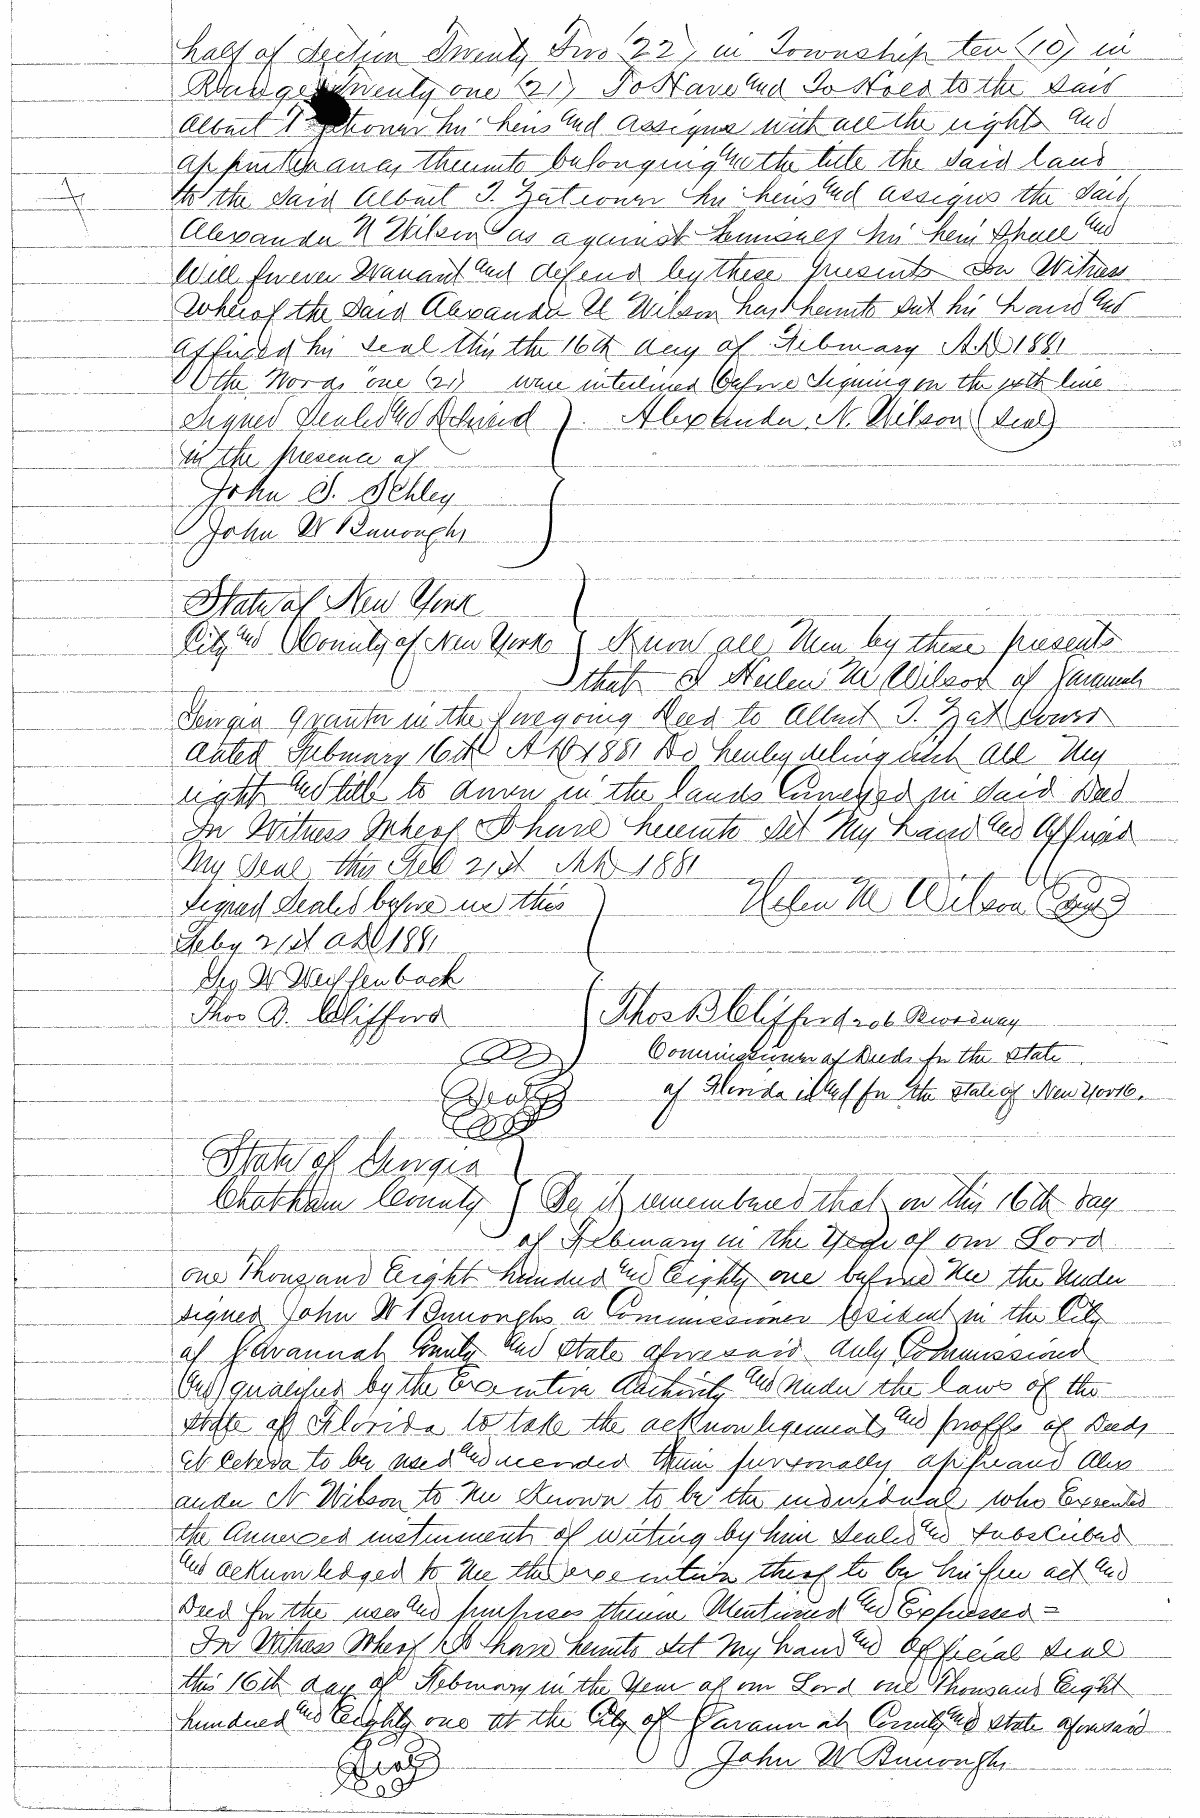 half of Section Twenty Two (22) in Township ten (10) in
Range Twenty one (21) To Have and To Hold to the said
Albert T his heirs and assigns with all the rights and
appurtenances thereunto belonging and the title the said land
to the said Albert T. Zatrouer his heirs and assigns the said
Alexander N Wilson as against himself his heirs shall and
Will forever Warrant and defend by these presents In Witness
Whereof the said Alexander N Wilson has hereunto set his hand and
affixed his seal this the 16th day of February A.D 1881
the Words "one (21) were interlined before signing on the line
Signed Sealed and Delivered } Alexander N. Wilson (Seal)
in the presence of
John S. Schley
John W Burroughs
State of New York
City and County of New York } Know all Men by these presents
that I Hellen M Wilson of Savannah
Georgia Grantor in the foregoing Deed to Albert T. Zatrouer
dated February 16th A D 1881 Do hereby relinquish all My
right and title to dower in the lands Conveyed in said Deed
In Witness Wheof I have hereunto set My hand and Affixed
My Seal this Feb 21st AD 1881
Signed Sealed before me this } Helen M Wilson (Seal)
Feby 21st AD 1881
Geo W Weiffenback
Thos B. Clifford } Thos B Clifford 206 Broadway
Commissioner of Deeds for the State
Seal of Florida in and for the state of New York.
State of Georgia
Chatham County } Be it remembered that on this 16th day
of February in the Year of our Lord
one Thousand Eight hundred and Eighty one before Me the Under
signed John W Burroughs a Commissioner resident in the City
of Savannah County and State aforesaid duly Commissioned
and qualified by the Executive Authority and under the laws of the
State of Florida to take the acknowlegements and proffs of Deeds
et cetera to be used and recorded therein personally appeared Alex
ander N Wilson to Me Known to be the individual who Executed
the Annexed instruments of writing by him Sealed and Subscribed
and acknowledged to Me the execution theof to be his free act and
Deed for the uses and purposes therein Mentioned and Expressed =
In Witness Wheof I have hereunto set My hand and Official Seal
this 16th day of February in the Year of our Lord one Thousand Eight
hundred and Eighty one at the City of Savannah County and state aforesaid
Seal John W Burroughs